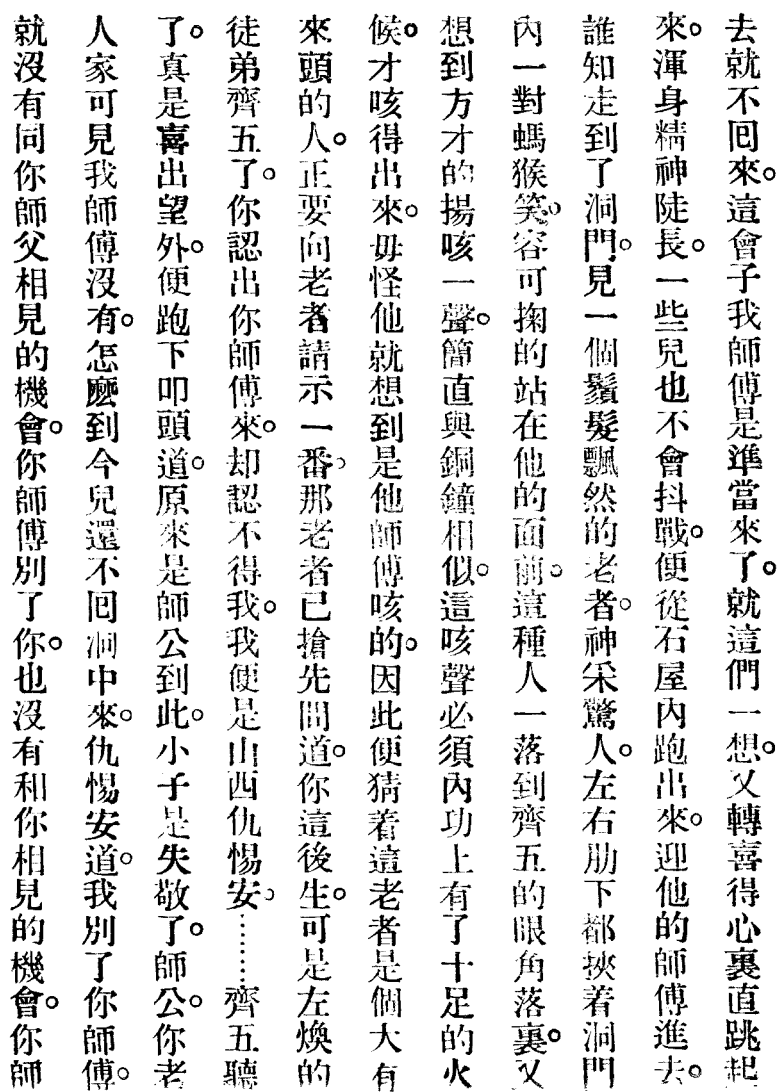 去就不回來。這會子我師傅是準當來了。就這們一想。又轉喜得心裏直跳起
來。渾身精神陡長。一些兒也不會抖戰。便從石屋內跑出來。迎他的師傅進去。
誰知走到了洞門。見一個鬚髮飄然的老者。神采驚人。左右肋下都挾着洞門
內一對螞猴。笑容可掬的站在他的面前。這種人一落到齊五的眼角落裏。又
想到方才的揚咳一聲。簡直與銅鐘相似。這咳聲必須內功上有了十足的火
候。才咳得出來。毋怪他就想到是他師傅咳的。因此便猜着這老者是個大有
來頭的人。正要向老者請示一番。那老者已搶先問道。你這後生。可是左煥的
徒弟齊五了。你認出你師傅來。却認不得我。我便是山西仇惕安。……齊五聽
了。真是喜出望外。便跑下叩頭道。原來是師公到此。小子是失敬了。師公你老
人家可見我師傅沒有。怎麽到今兒還不回洞中來。仇惕安道。我別了你師傅。
就沒有同你師父相見的機會。你師傅別了你。也沒有和你相見的機會。你師